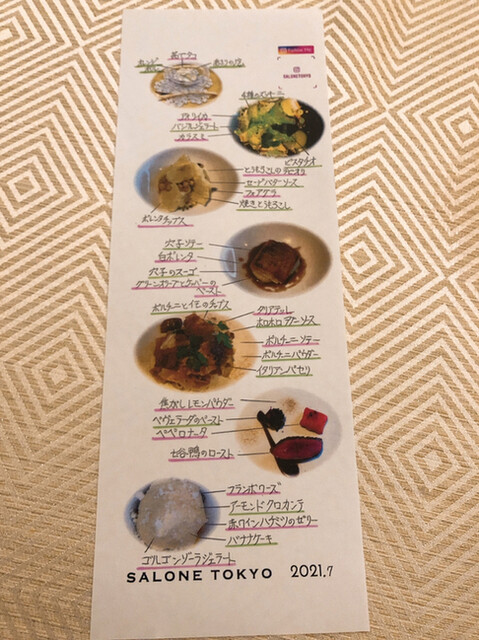 SALONETOKYO
4種のズッキーニ
アオリイカ
バジルジェラート
カラスミ
ピスタチオ
とうもろこしのラビオリ
セージバターソース
フォアグラ
焼きとうもろこし
ポレンタチップス
穴子ソテー
白ポレンタ
穴子のスーゴ
グリーンオリーブとケーパーの
ペースト
ポルチーニとイモのチップス
タリアテッレ
ホロホロ鳥ソース
ポルチーニソテー
ポルチーニパウダー
イタリアンパセリ
焦がしレモンパウダー
ペヴェラーダのペースト
ペペロナータ
七谷鴨のロースト
フランボワーズ
アーモンドクロカンテ
赤ワインハチミツのゼリー
バナナケーキ
ゴルゴンゾーラジェラート
SALONE TOKYO 2021.7